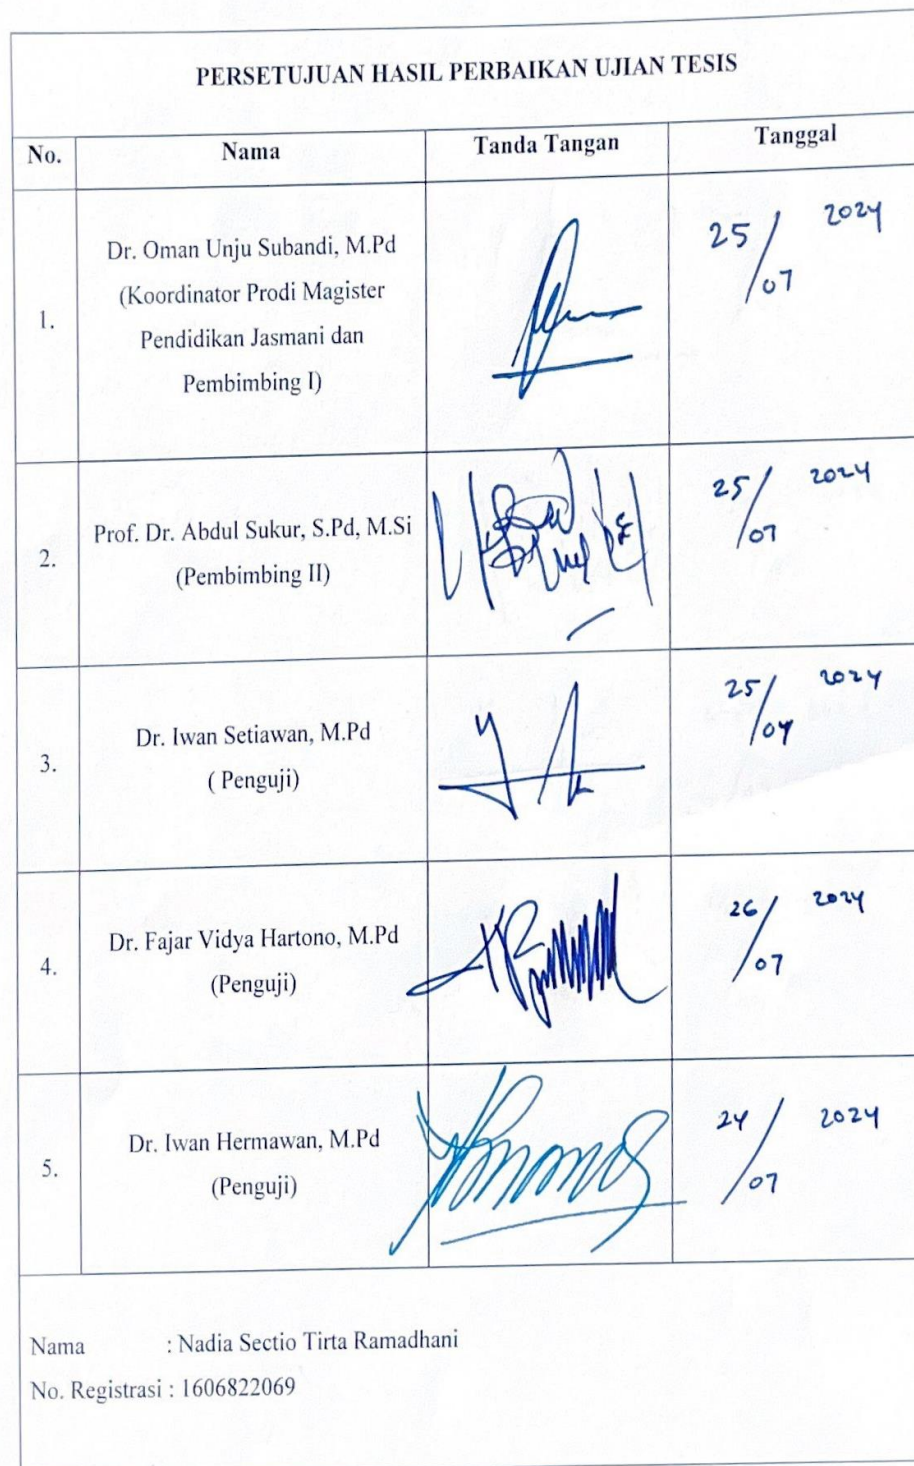 PERSETUJUAN HASIL PERBAIKAN UJIAN TESIS
No. Nama Tanda Tangan Tanggal
1.
Dr. Oman Unju Subandi, M.Pd
(Koordinator Prodi Magister
Pendidikan Jasmani dan
Pembimbing I)
25/07 2024
2.
Prof. Dr. Abdul Sukur, S.Pd, M.Si
(Pembimbing II)
25/07 2024
3.
Dr. Iwan Setiawan, M.Pd
( Penguji)
25/ 2024
4.
Dr. Fajar Vidya Hartono, M.Pd
(Penguji)
26/07 2024
5.
Dr. Iwan Hermawan, M.Pd
(Penguji)
24/07 2024
Nama : Nadia Sectio Tirta Ramadhani
No. Registrasi : 1606822069